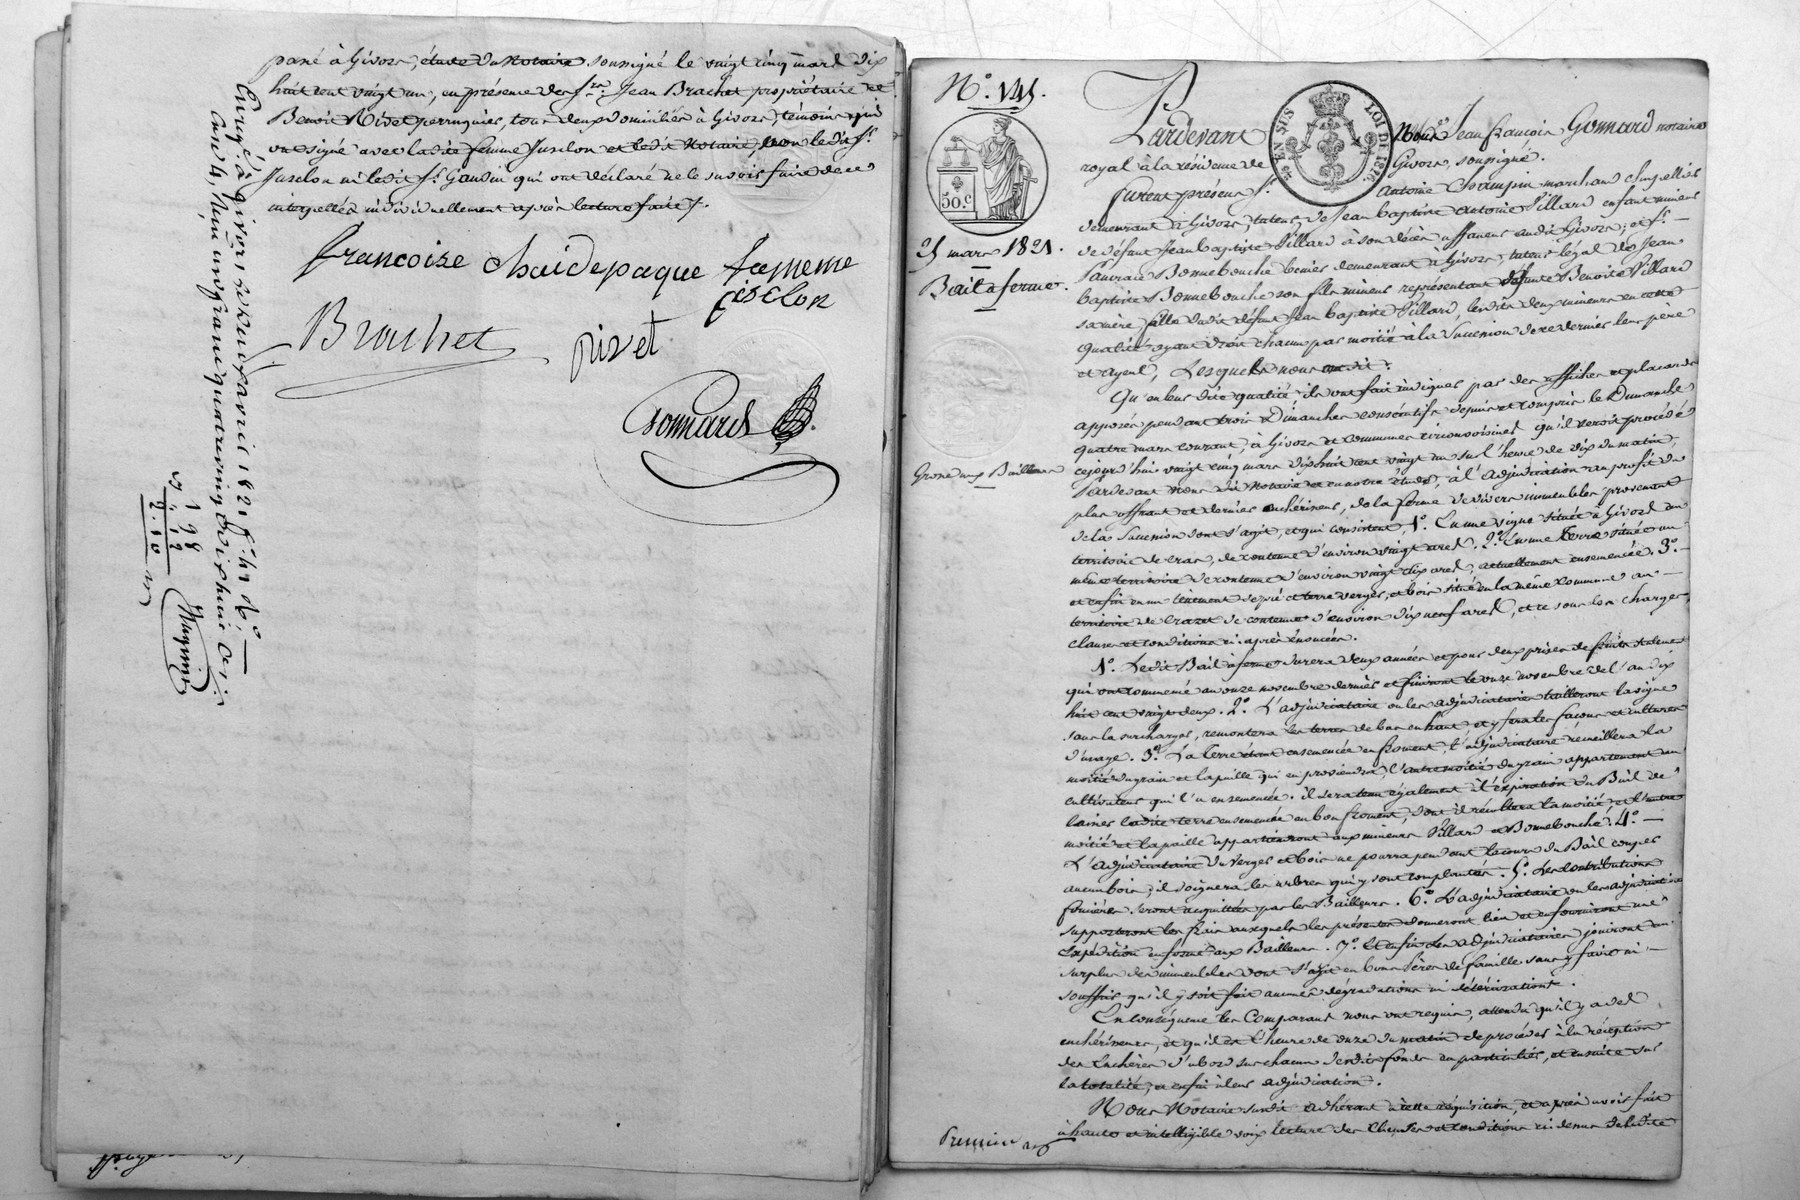 passé à Givors, étude du notaire soussigné le vingt cinq mars dix
huit cent vingt un, en présence des srs Jean Brachet propriétaire et
Benoît Rivet perruquier, tous deux domiciliés à Givors, témoins qui
ont signé avec ladite femme Juselon et ledit Notaire, non ledit Sr
Juselon ni ledit Sr Gaudin qui ont déclaré ne le savoir faire de ce
interpellés individuellement après lecture faite.
francoise chaidepaque fameme
Brachet
rivet
Gonnard
Enregé à givors, le avril 1821 fo
Case 4, Reçu un franc quatre vingt dix huit
1 98
2.10
No. 145.
25 mars 1821.
Bail à ferme.
50.c
EN SUS
LOI DE 1816
Grosse aux Bailleurs
Pardevant Nous Jean françois Gonnard notaire
royal à la résidence de Givors, soussigné.
furent présens Sr. Antoine Champin marchand
demeurant à Givors, tuteur de Jean baptiste Antoine Villard enfant mineur
de défunt Jean baptiste Villard à son décès audit Givors; et Sr.
Bonnebouche demeurant à Givors, tuteur légal de Jean
baptiste Bonnebouche son fils mineur représentant défunte Benoite Villard
sa mère fille dudit défunt Jean baptiste Villard, lesdits deux mineurs en cette
qualité ayant droit chacun par moitié à la succession de ce dernier leur père
et ayeul, Lesquels nous ont dit:
Qu'en leur dite qualité, ils ont fait indiquer par des affiches et placards
apposés pendant trois Dimanches consécutifs depuis et compris le Dimanche
quatre mars courant, à Givors et communes circonvoisines qu'il seroit procédé
cejourd'hui vingt cinq mars dix huit cent vingt un sur l'heure de dix du matin,
Pardevant nous dit Notaire et en notre étude, à l'adjudication au profit du
plus offrant et dernier enchérisseur, de la ferme de divers immeubles provenant
de la Succession dont s'agit, et qui consistent, 1o. En une vigne située à Givors au
territoire de cras, de contenue d'environ vingt ares. 2o. En une Terre située au
même territoire de contenue d'environ vingt dix ares, actuellement ensemencée. 3o.
et enfin en un tènement de pré et terre verger, et bois situé en la même Commune au
territoire de de contenue d'environ dix neuf ares, et ce sous les charges,
clauses et conditions ci-après énoncées.
1o. Ledit Bail à ferme durera deux années et pour deux prises de fruits seulement
qui ont commencé au onze novembre dernier et finiront le onze novembre de l'an dix
huit cent vingt deux. 2o. L'adjudicataire ou les adjudicataires tailleront la vigne
sans la surcharger, remontera les terres de bas en haut, et y fera les façons et cultures
d'usage. 3o. La Terre étant ensemencée en froment, l'adjudicataire recueillera la
moitié du grain et la paille qui en proviendra, l'autre moitié du grain appartenant au
cultivateur qui l'a ensemencée. il sera tenu également à l'expiration du Bail de
laisser ladite terre ensemencée en bon froment, dont il récoltera la moitié, et l'autre
moitié et la paille appartiendront aux mineurs Villard et Bonnebouche. 4o.
L'adjudicataire du verger et bois ne pourra pendant le cours du Bail couper
aucun bois; il soignera les arbres qui y sont complantés. 5o. Les Contributions
foncières seront acquittées par les Bailleurs. 6o. L'adjudicataire ou les adjudicataires
supporteront les frais auxquels les présentes donneront lieu et en fourniront une
expédition en forme aux Bailleurs. 7o. Et enfin les adjudicataires jouiront au
surplus des immeubles dont s'agit en bons pères de famille sans y faire ni
souffrir qu'il y soit fait aucunes dégradations ni détériorations.
En conséquence les Comparans nous ont requis, attendu qu'il y a des
enchérisseurs, et qu'il est l'heure de onze du matin de procéder à la réception
des Enchères d'abord sur chacun desdits fonds en particulier, et ensuite sur
la totalité; et enfin à leur adjudication.
Nous Notaire susdit adhérant à cette réquisition, et après avoir fait
à haute et intelligible voix lecture des Charges et Conditions ci dessus de ladite
Premier